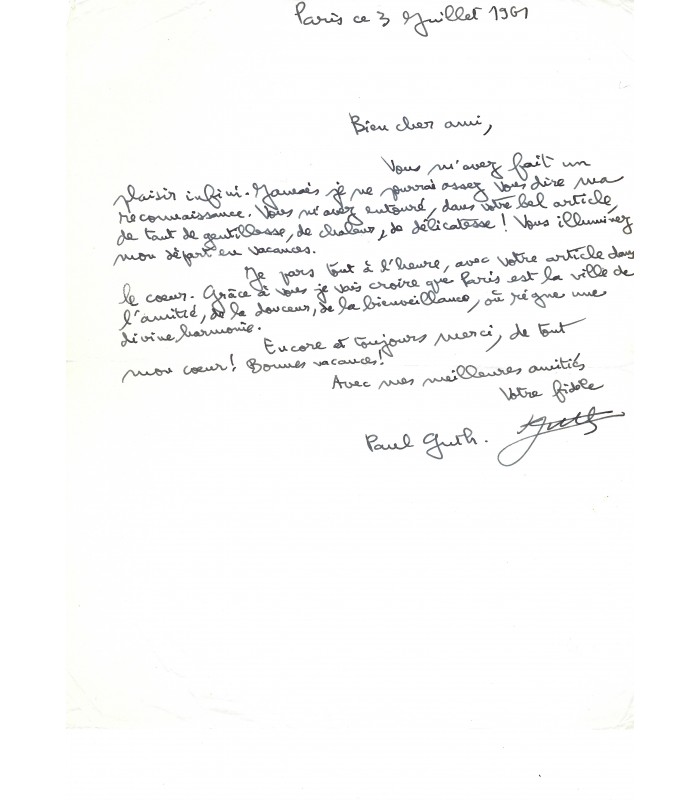 Paris ce 3 Juillet 1961
Bien cher ami,
Vous m'avez fait un
plaisir infini. Jamais je ne pourrai assez vous dire ma
reconnaissance. Vous m'avez entouré, dans votre bel article,
de tant de gentillesse, de chaleur, de délicatesse ! Vous illuminez
mon départ en vacances.
Je pars tout à l'heure, avec votre article dans
le coeur. Grâce à vous je vais croire que Paris est la ville de
l'amitié, de la douceur, de la bienveillance, où règne une
divine harmonie.
Encore et toujours merci, de tout
mon coeur ! Bonnes vacances !
Avec mes meilleures amitiés
Votre fidèle
Paul Guth. Guth